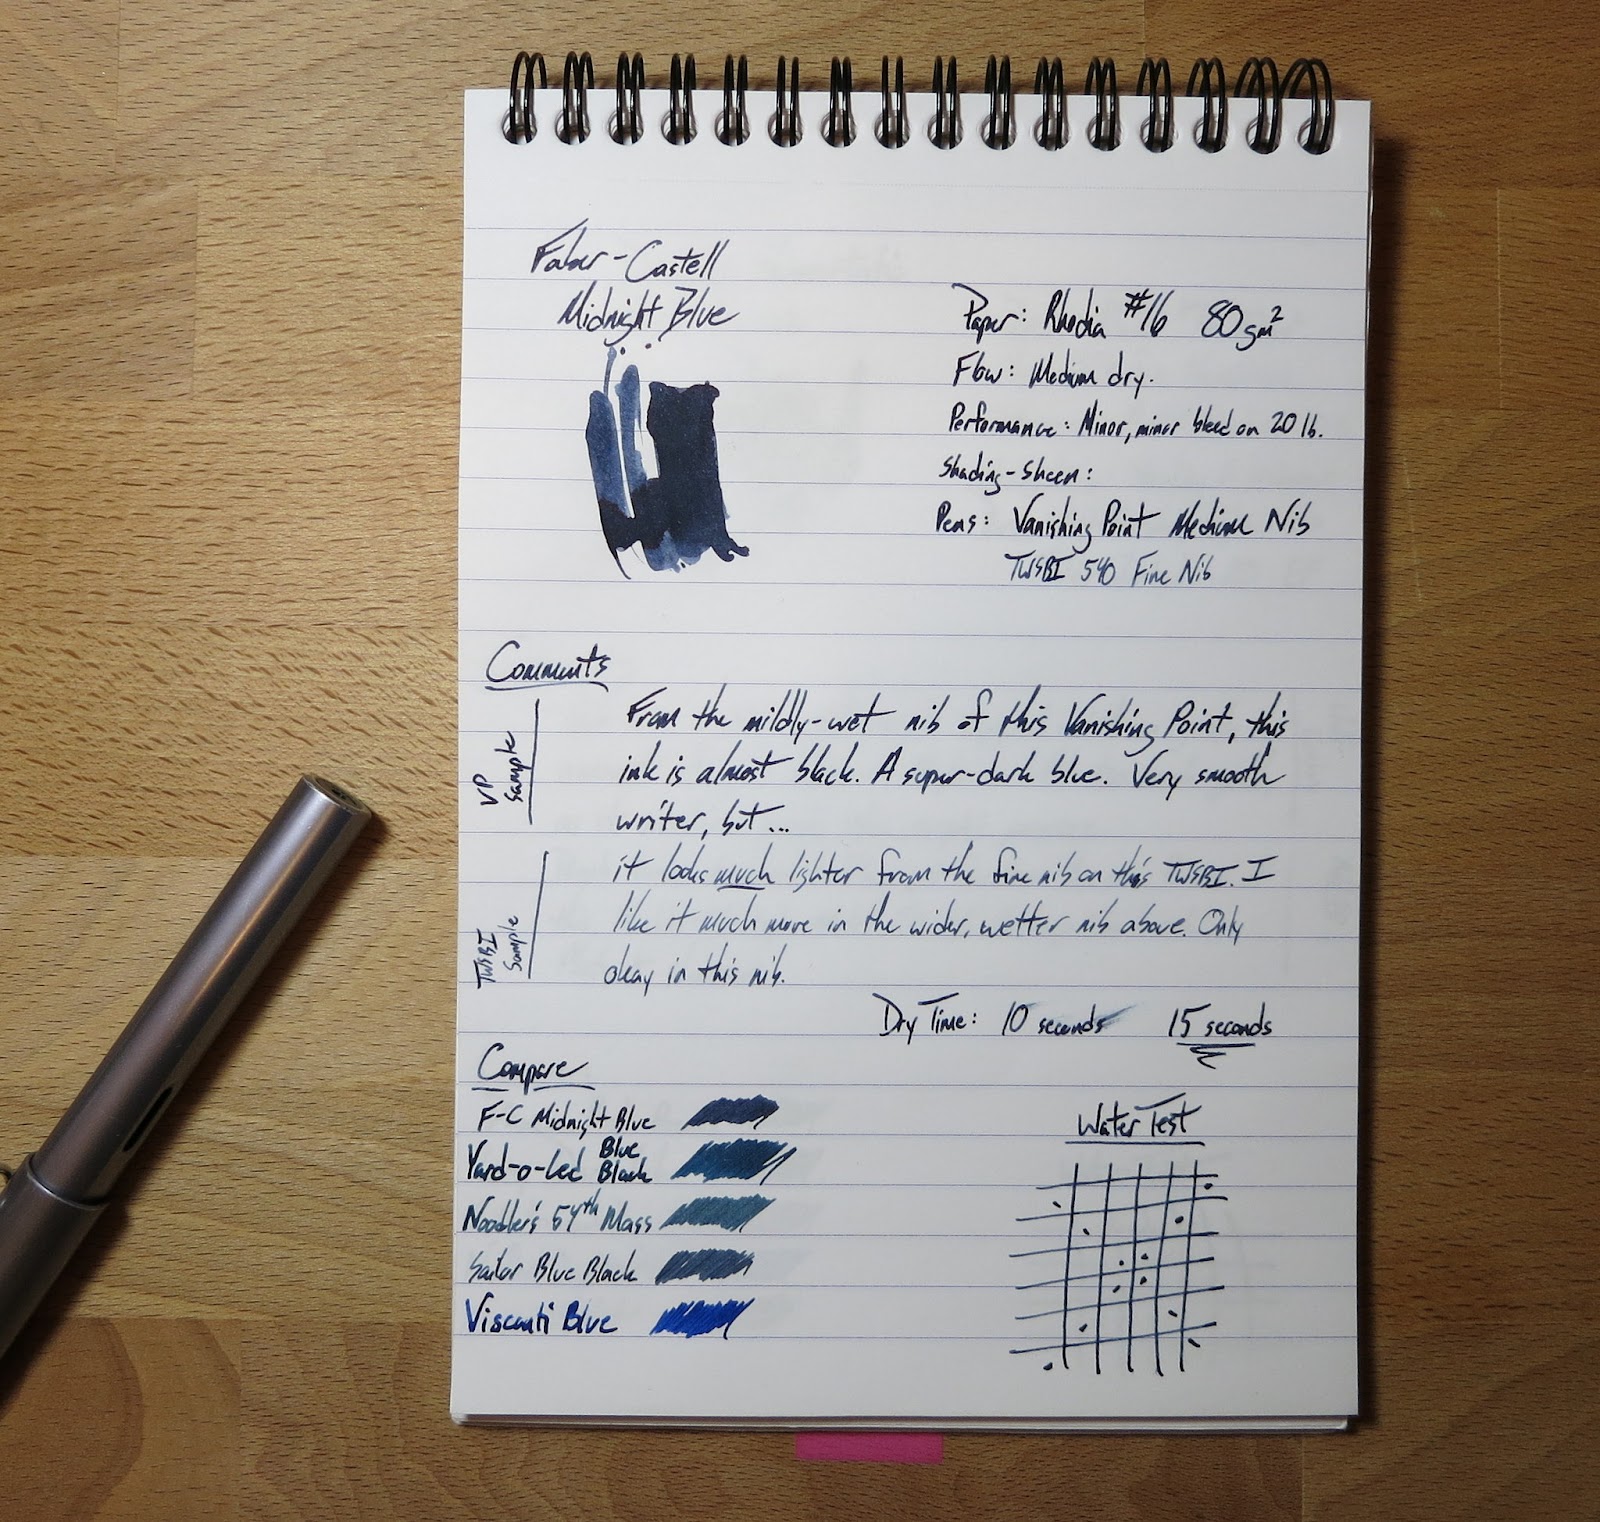 Faber-Castell
Midnight Blue
Paper: Rhodia #16 80gm²
Flow: Medium dry.
Performance: Minor, minor bleed on 20 lb.
Shading-Sheen:
Pens: Vanishing Point Medium Nib
TWSBI 540 Fine Nib
Comments
VP
Sample
From the mildly-wet nib of this Vanishing Point, this
ink is almost black. A super-dark blue. Very smooth
writer, but...
TWSBI
Sample
it looks much lighter from the fine nib on this TWSBI. I
like it much more in the wider, wetter nib above. Only
okay in this nib.
Dry Time: 10 seconds 15 seconds
Compare
F-C Midnight Blue
Yard-o-Led Blue Black
Noodler's 54th Mass
Sailor Blue Black
Visconti Blue
Water Test